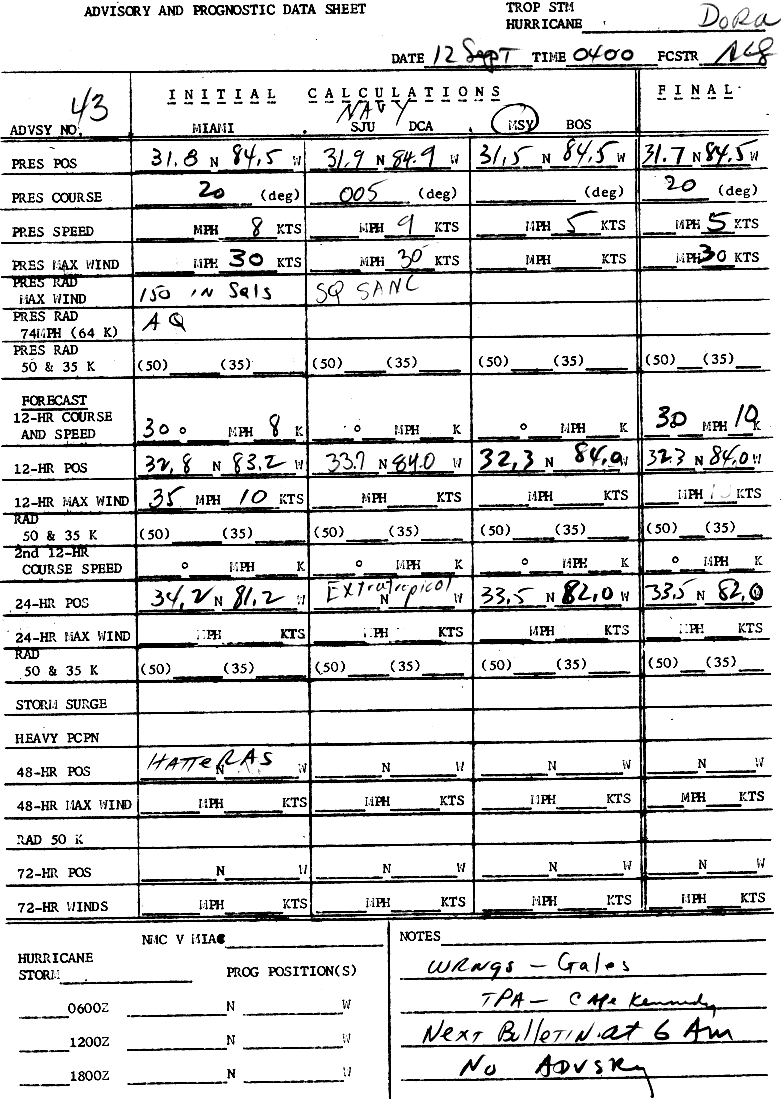 ADVISORY AND PROGNOSTIC DATA SHEET TROP STM
HURRICANE DORA
DATE 12 Sept TIME 0400 FCSTR
INITIAL CALCULATIONS FINAL
43 NAVY
ADVSY NO. MIAMI SJU DCA MSY BOS
PRES POS 31.8 N 84.5 W 31.9 N 84.9 W 31.5 N 84.5 W 31.7 N 84.5 W
PRES COURSE 20 (deg) 005 (deg) (deg) 20 (deg)
PRES SPEED MPH 8 KTS MPH 9 KTS MPH 5 KTS MPH 5 KTS
PRES MAX WIND MPH 30 KTS MPH 30 KTS MPH KTS MPH 30 KTS
PRES RAD
MAX WIND 150 IN Sqls SQ SANC
PRES RAD
74MPH (64 K) A Q
PRES RAD
50 & 35 K (50) (35) (50) (35) (50) (35) (50) (35)
FORECAST
12-HR COURSE
AND SPEED 30 o MPH 8 K o MPH K o MPH K 30 MPH 10 K
12-HR POS 32.8 N 83.2 W 33.7 N 84.0 W 32.3 N 84.0 W 32.3 N 84.0 W
12-HR MAX WIND 35 MPH 10 KTS MPH KTS MPH KTS MPH KTS
RAD
50 & 35 K (50) (35) (50) (35) (50) (35) (50) (35)
2nd 12-HR
COURSE SPEED o MPH K o MPH K o MPH K o MPH K
24-HR POS 34.2 N 81.2 W Extratropical N W 33.5 N 82.0 W 33.5 N 82.0
24-HR MAX WIND MPH KTS MPH KTS MPH KTS MPH KTS
RAD
50 & 35 K (50) (35) (50) (35) (50) (35) (50) (35)
STORM SURGE
HEAVY PCPN
48-HR POS HATTERAS N W N W N W N W
48-HR MAX WIND MPH KTS MPH KTS MPH KTS MPH KTS
RAD 50 K
72-HR POS N W N W N W N W
72-HR WINDS MPH KTS MPH KTS MPH KTS MPH KTS
NMC V MIAC
HURRICANE
STORM PROG POSITION(S)
0600Z N W
1200Z N W
1800Z N W
NOTES
WRNGS - Gales
TPA - CApe Kennedy
Next Bulletin at 6 Am
No ADVSRY